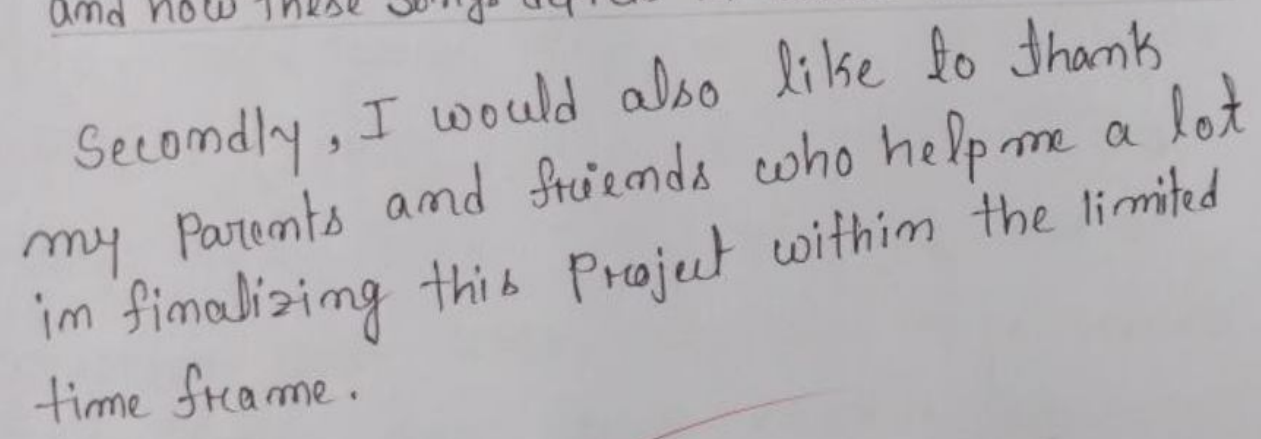 and how these songs
Secondly, I would also like to thank
my Parents and friends who help me a lot
in finalizing this Project within the limited
time frame.